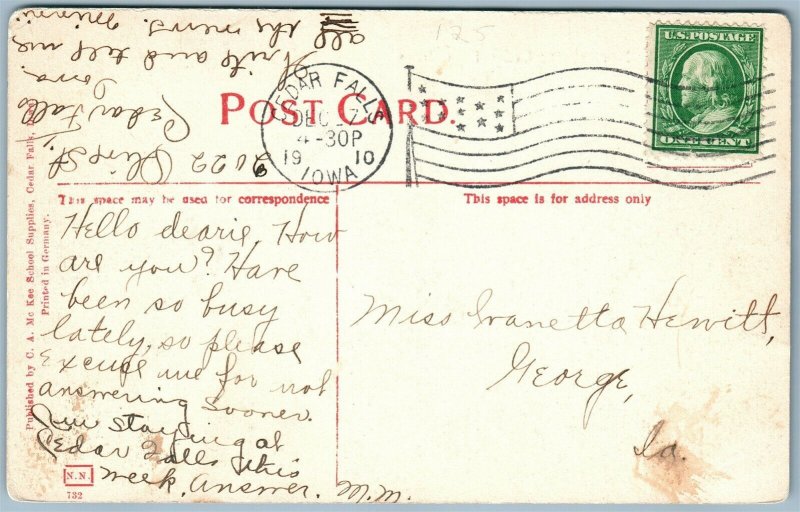 POST CARD.
CEDAR FALLS
DEC 7
4-30P
1910
IOWA
U.S. POSTAGE
ONE CENT
125
This space may be used for correspondence
This space is for address only
Hello dearie, How
are you? Have
been so busy
lately, so please
excuse me for not
answering sooner.
Am staying at
Cedar Falls this
week. Answer. M.W.
2022 Olive St.
Cedar Falls
Iowa.
Write and tell me
all the news.
Miss Ivanetta Hewitt,
George,
Ia.
Published by C. A. Mc Kee School Supplies, Cedar Falls,
Printed in Germany.
N.N.
732